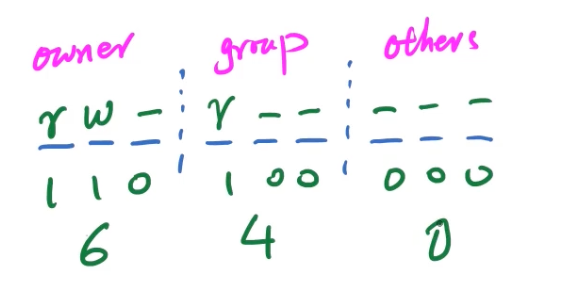 owner group others
r w - r - - - - -
1 1 0 1 0 0 0 0 0
6 4 0